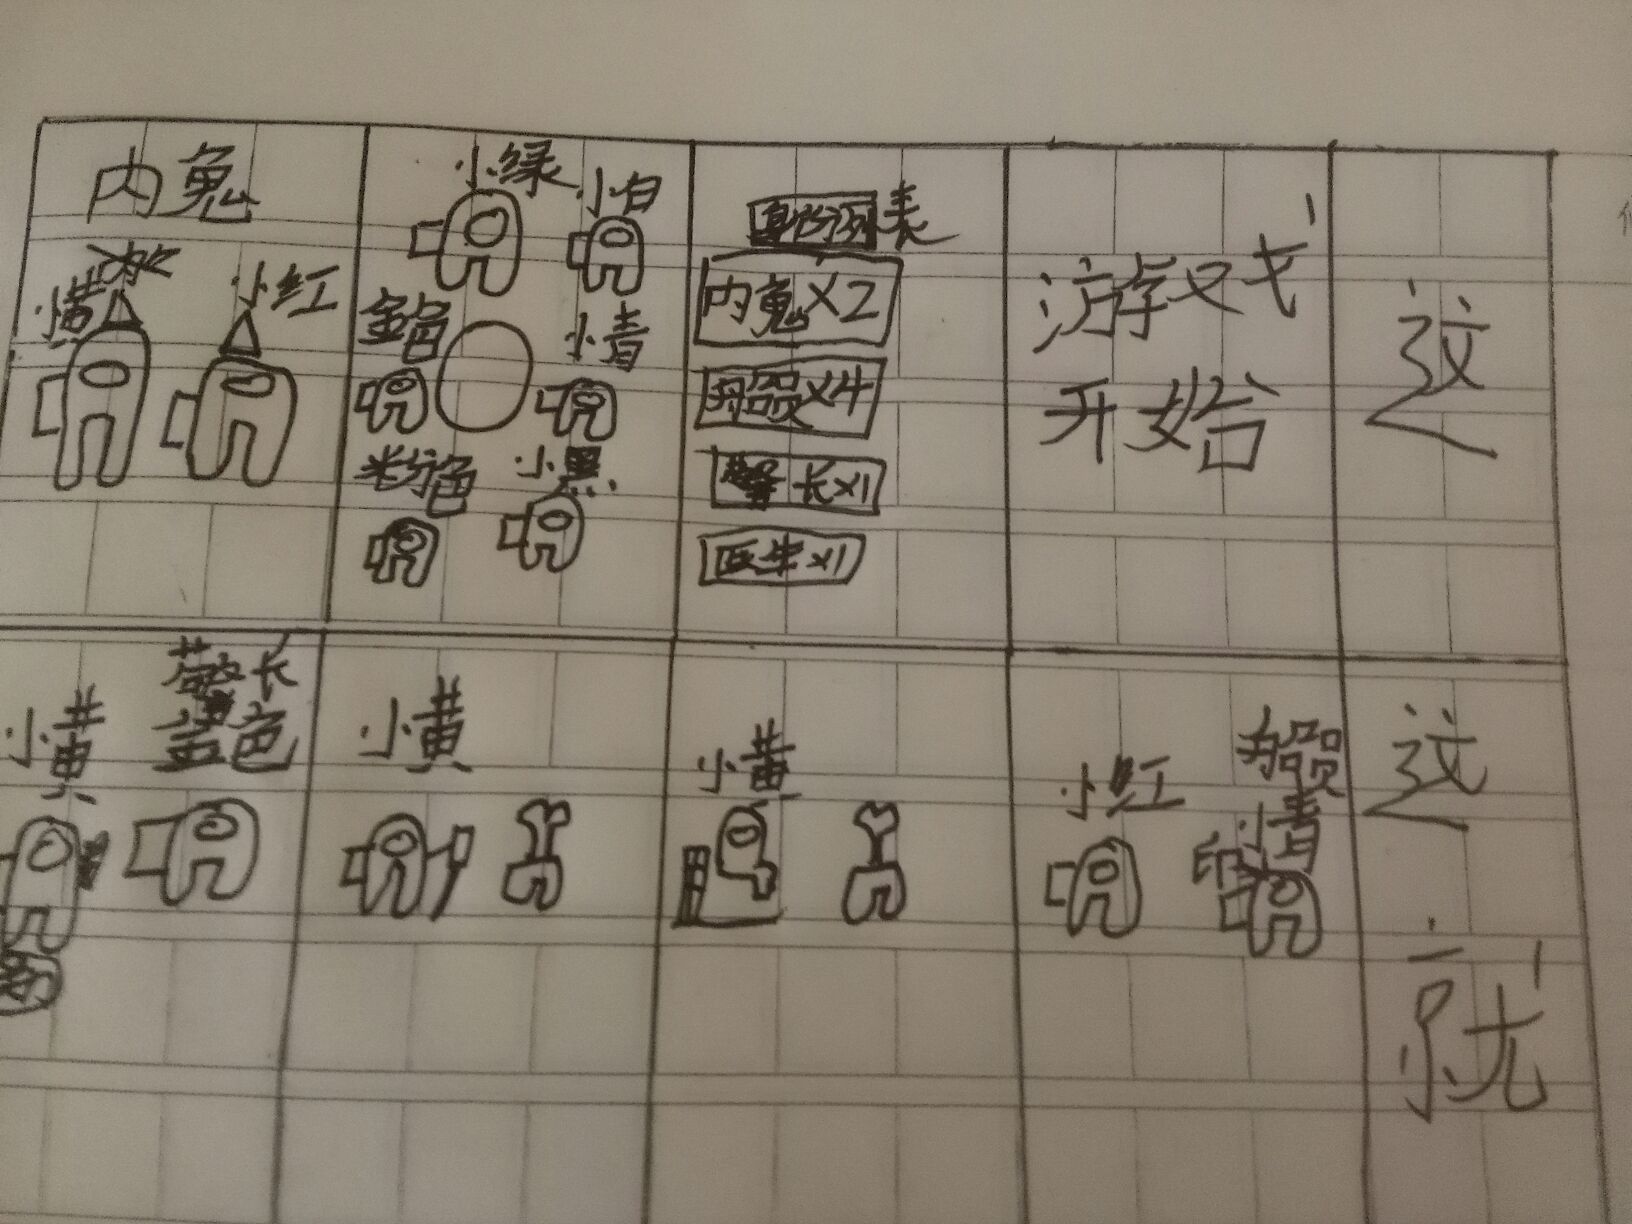 内鬼
小黄
小红
小绿
小白
金色
小青
粉色
小黑
身份列表
内鬼X2
船员X4
警长X1
医生X1
游戏
开始
这
小黄
警长
蓝色
小黄
小黄
小红
船员
小青
这
就